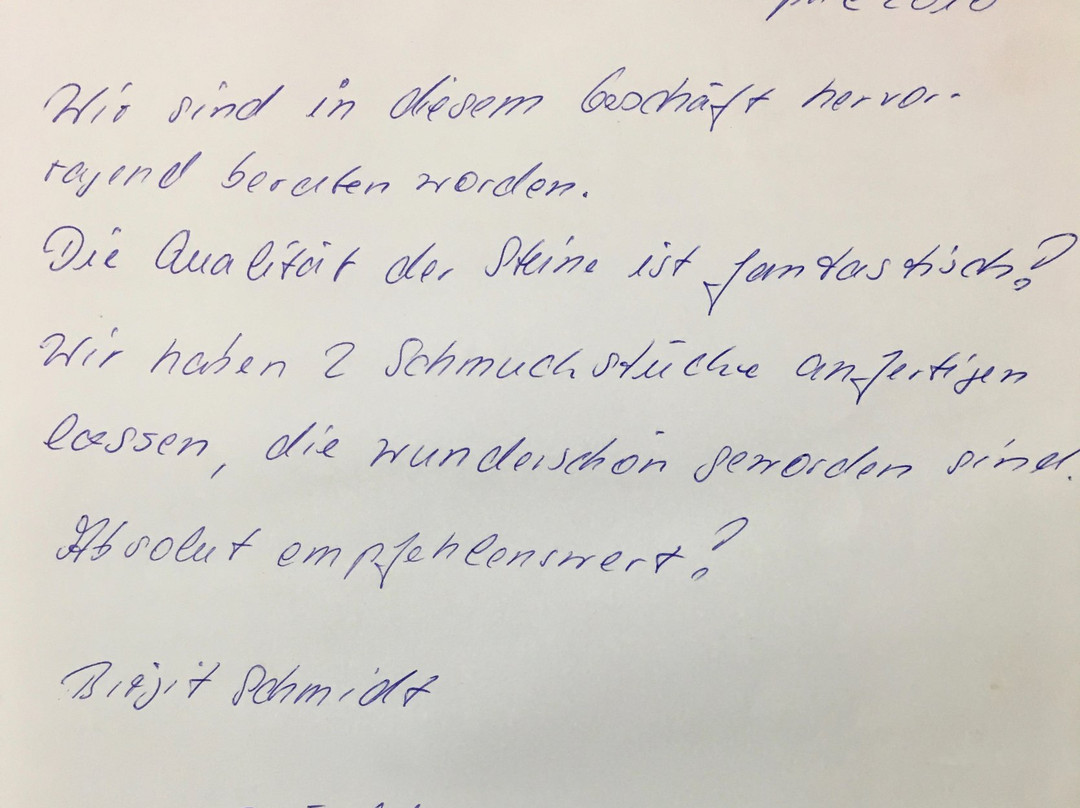 Wir sind in diesem Geschäft hervor-
ragend beraten worden.
Die Qualität der Steine ist fantastisch!
Wir haben 2 Schmuckstücke anfertigen
lassen, die wunderschön geworden sind.
Absolut empfehlenswert!
Birgit Schmidt